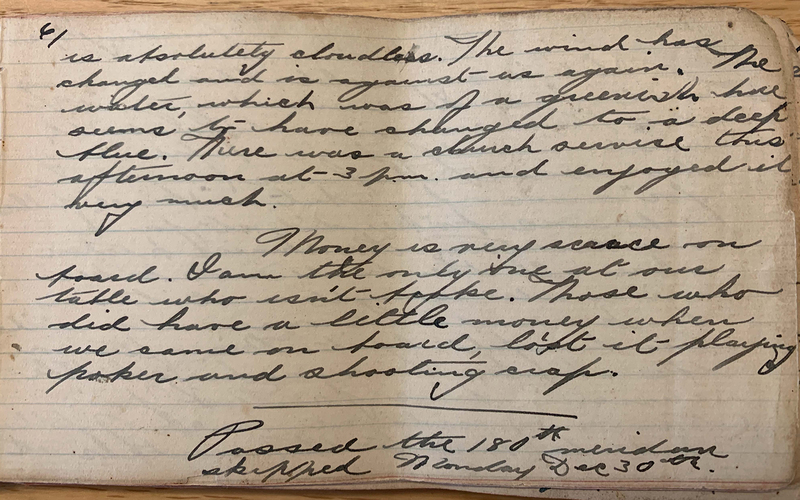 61
is absolutely cloudless. The wind has
changed and is against us again. The
water, which was of a greenish hue
seems to have changed to a deep
blue. There was a church servise this
afternoon at 3 p.m. and enjoyed it
very much.
Money is very scarce on
board. I am the only one at our
table who isn't broke. Those who
did have a little money when
we came on board, lost it playing
poker and shooting crap.
Passed the 180th meridian
skipped Monday Dec 30th.